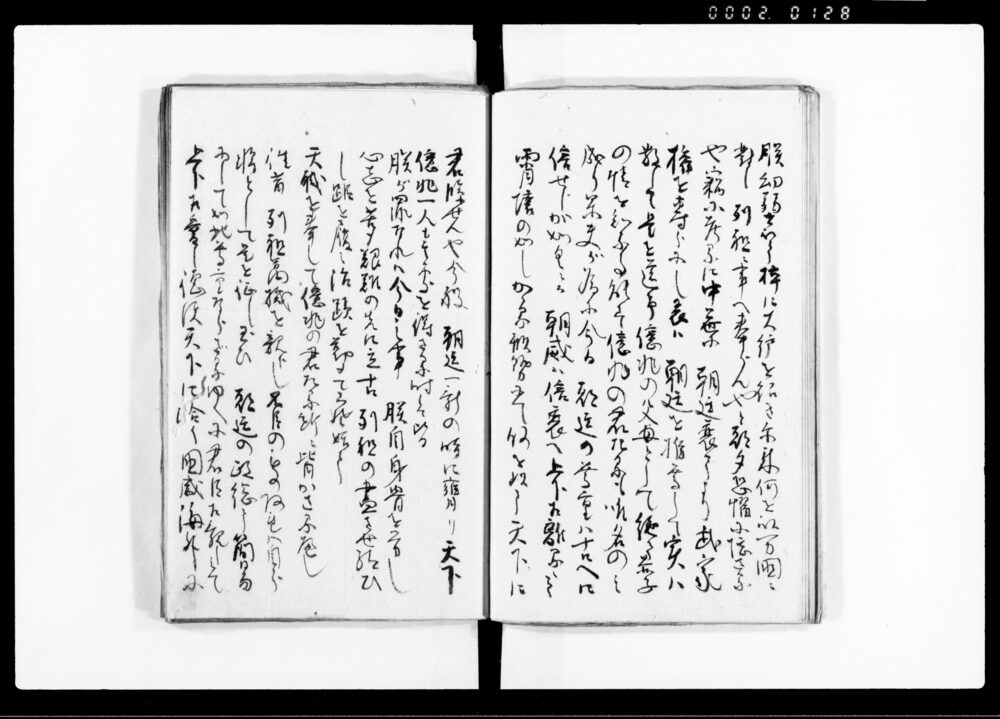 朕幼弱を以て猝に大統を紹き爾来何を以万国に
対し 列祖に事へ奉らんやと朝夕恐惶に堪さる
や窃に考るに中葉 朝廷衰てより武家
権を専らにし表は 朝廷を推尊して実は
敬して是を遠け億兆の父母として絶て赤子
の情を知る 億兆の君たるも唯名のみ
成り果夫が為に今日 朝廷の尊重は古へに
倍せしが如くにて 朝威は倍衰へ上下相離るゝこと
霄壌の如しかゝる形勢にて何を以て天下に
君臨せんや今般 朝廷一新の時に膺り天下
億兆一人も其処を得さる時は皆
朕が罪なれは今日之事 朕自身骨を労し
心志を苦め艱難の先に立古 列祖の尽させ給ひ
し蹤を履み治蹟を勤てこそ始て
天職を奉して億兆の君たる所に背かさるへし
往昔 列祖万機を親らし不臣のものあれは自ら
将として是を征し玉ひ 朝廷の政総て簡易
にして如此尊重ならさるゆへに君臣相親しみて
上下相愛し徳沢天下に洽く国威海外に
0002. 0128